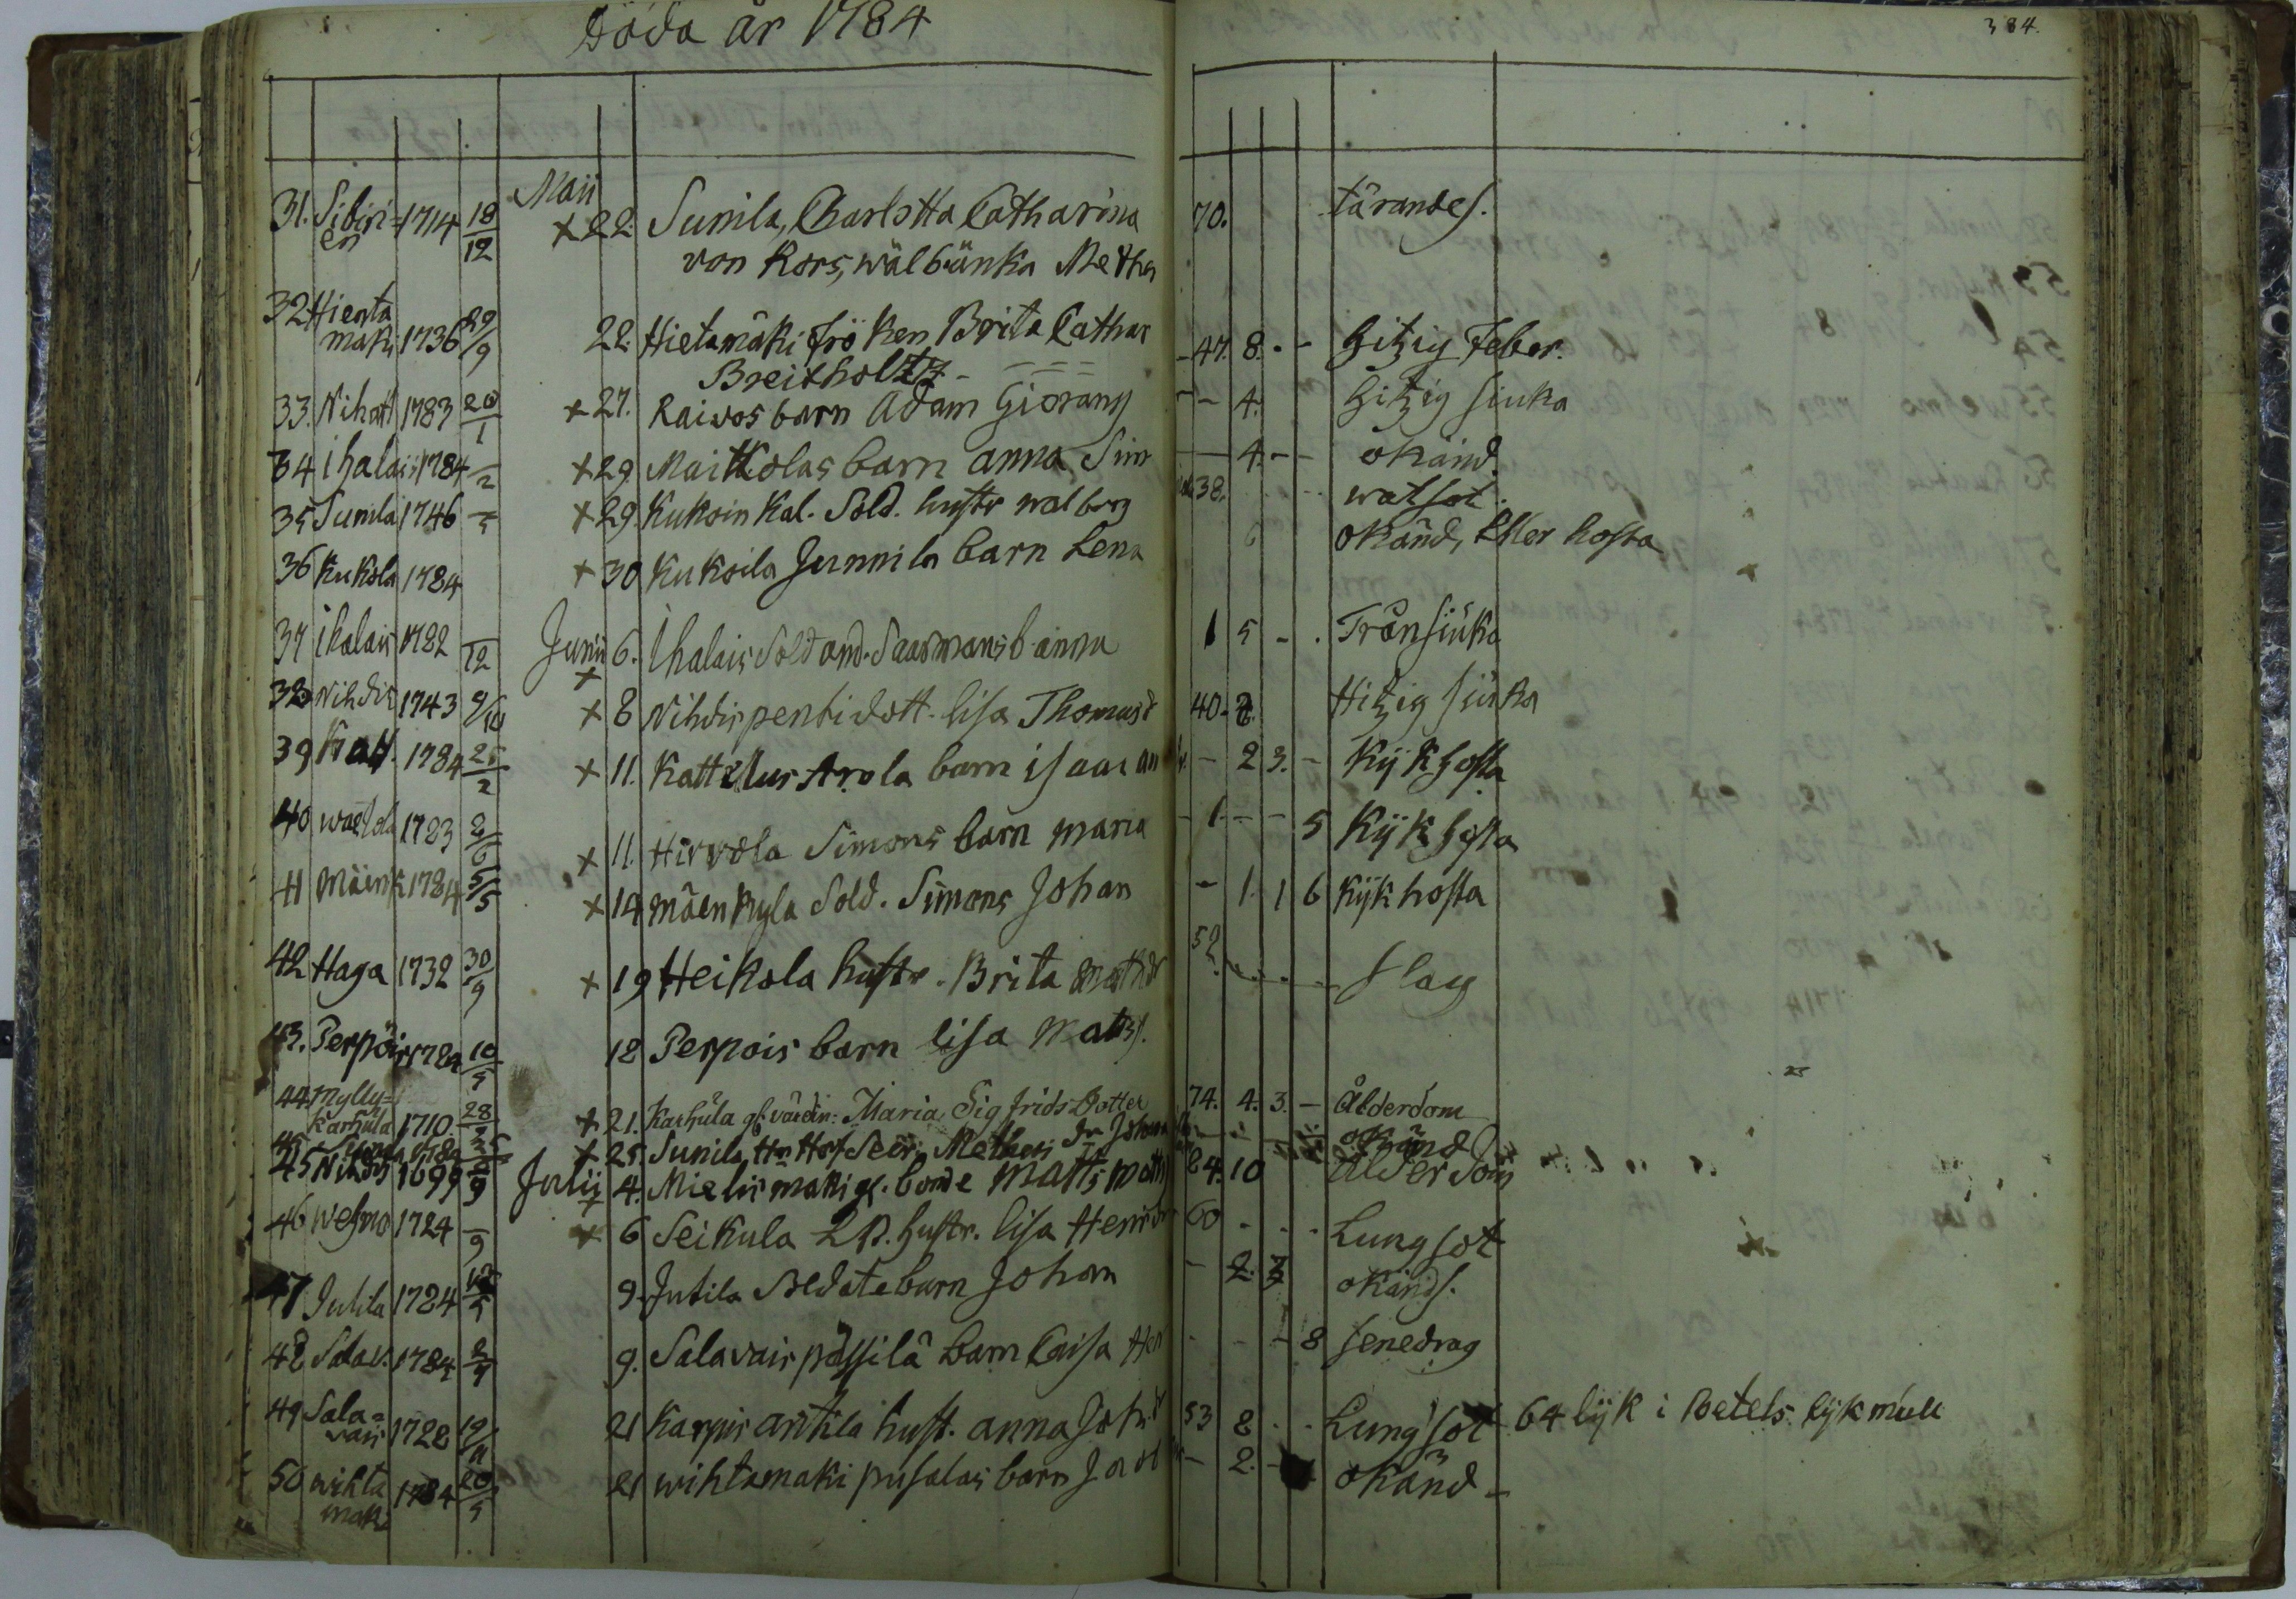 Döda år 1784
384.
Maii
31. Sibiri= 1714 18/12 × 22. Sunila, Charlotta Catharina 70. tärandes.
en von Kors, wälb: änka Metha
32 Hieta
maki 1736 29/9 22. Hietamäki fröken Brita Cathar - 47. 8. - - Hitzig Feber.
Breitholtz
33. Nihatt 1783 20/1 × 27. Raivos barn Adam Giörans - - 4. Hitzig siuka
34 ihalais 1784 /2 × 29. Maittolas barn anna Sim — 4. - - okänd.
35 Sunila 1746 × 29. Kuksin Kal. Sold. hustr walborg 38. watsot.
36 Kuksla 1784 × 30 Kuksila Junnila barn Lena 6 okänd, Eller hosta
37 ihalais 1782 /12 Junii × 6. ihalais Sold and. Saarmans b. anna 1 5 - . Trånsiüka
38 Nihdis 1743 9/10 × 8 Nihdis pentidott. lisa Thomasd 40 - 8. Hitzig siüka
39 Katt. 1784 25/2 × 11. Kattelus Arola barn isaac an - 2 3. - Kijkhosta
40 1783 8/6 × 11. Hirvola Simons barn maria - 1 - - 5 Kijkhosta
41 Mäenk 1784 5/5 × 14 mäenkyla Sold. Simons Johan - 1. 1 6 kijkhosta
42 Haga 1732 30/9 × 19 Heikola hustr. Brita Matthdr 52. slag
43. Perpöis 1784 10/5 18 Perpois barn lisa Matts.
44. mylly=
Karhula 1710 28/2 × 21. Karhula gl. värdin: Maria Sigfrids Dotter 74. 4. 3. - Ålderdom
× 25. Sunila Methers Johan okänd
45 1699 /9 Julii × 4. Mielismaki gl. bonde Matts Matts 84. 10 ålderdom
46 wehmo 1724 /9 × 6 Seikula hustr. lisa Henrdr 60 . . . Lungsot
47 Jutila 1784 9. Jutila Soldate barn Johan - 2. okänd.
48 Salav. 1784 9. Salavais pässilä barn Caisa Hen - - - 8 senedrag
49 Sala=
vais 1728 19/11 21 Karpis antila hust. anna Joh. d 53 8 . . Lungsot 64 lijk i Betels lijk mull
50 wihta
maki 1784 20/5 21 wihtamaki pusalas barn - 2. - okänd -